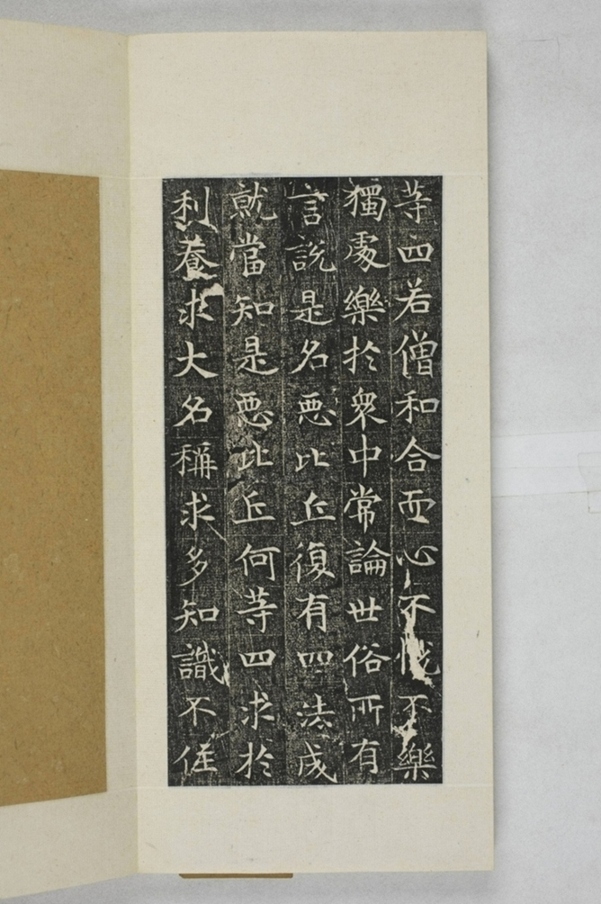 等四若僧和合而心不悅不樂
獨處樂於衆中常論世俗所有
言說是名惡比丘復有四法成
就當知是惡比丘何等四求於
利養求大名稱求多知識不住